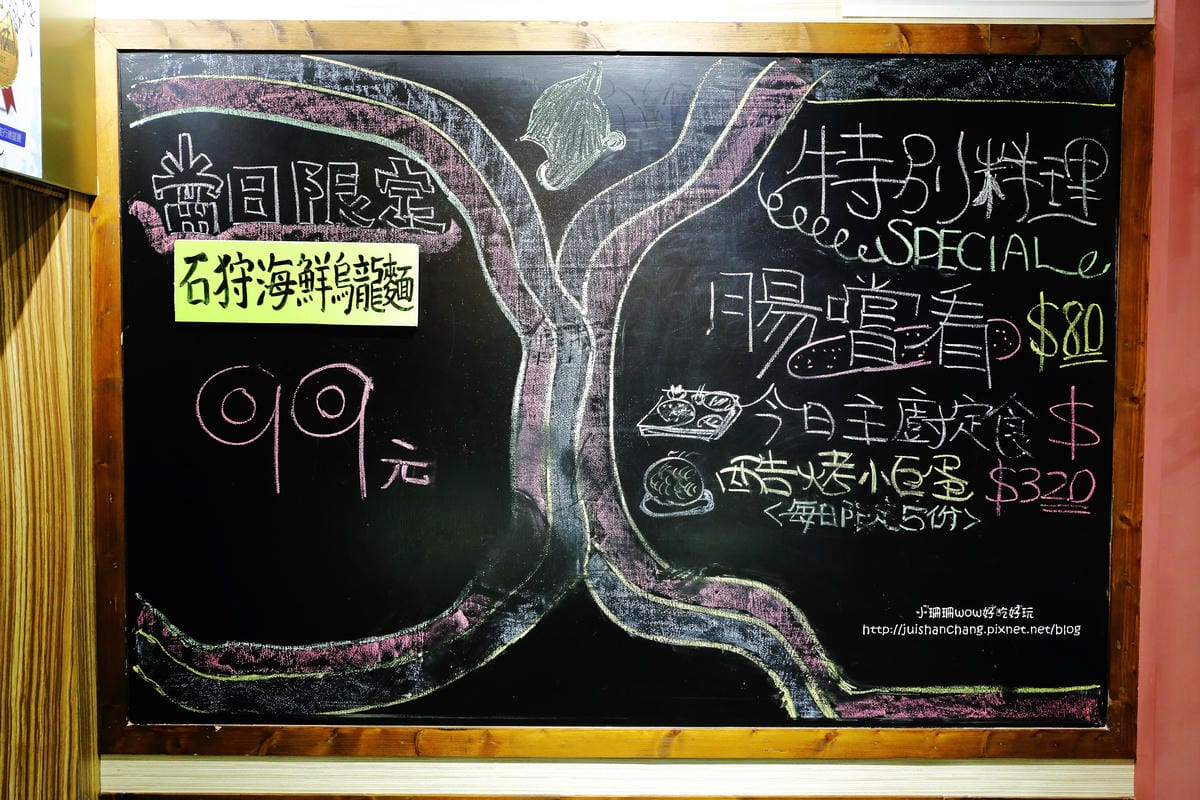 當日限定
石狩海鮮烏龍麵
99元
特別料理
SPECIAL
腸嚐看 $80
今日主廚定食 $
酷烤小巨蛋 $320
<每日限定5份>
小珊珊wow好吃好玩
http://juishanchang.pixnet.net/blog